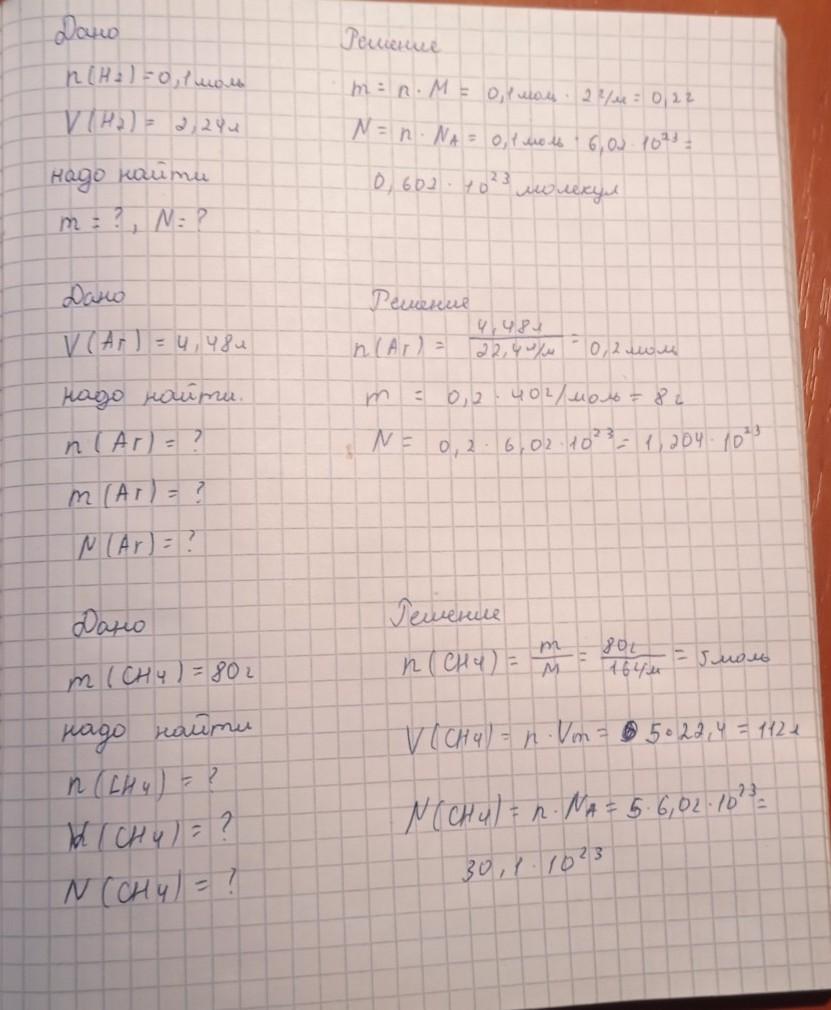 Дано
n(H2) = 0,1 моль
V(H2) = 2,24л
надо найти
m = ?, N = ?
Решение
m = n · M = 0,1 моль · 2 г/м = 0,2 г
N = n · NA = 0,1 моль · 6,02 · 10²³ =
0,602 · 10²³ молекул
Дано
V(Ar) = 4,48л
надо найти.
n(Ar) = ?
m(Ar) = ?
N(Ar) = ?
Решение
n(Ar) = 4,48л / 22,4 л/м = 0,2 моль
m = 0,2 · 40 г/моль = 8 г
N = 0,2 · 6,02 · 10²³ = 1,204 · 10²³
Дано
m(CH4) = 80 г
надо найти
n(CH4) = ?
V(CH4) = ?
N(CH4) = ?
Решение
n(CH4) = m / M = 80г / 16 г/м = 5 моль
V(CH4) = n · Vm = 5 · 22,4 = 112 л
N(CH4) = n · NA = 5 · 6,02 · 10²³ =
30,1 · 10²³